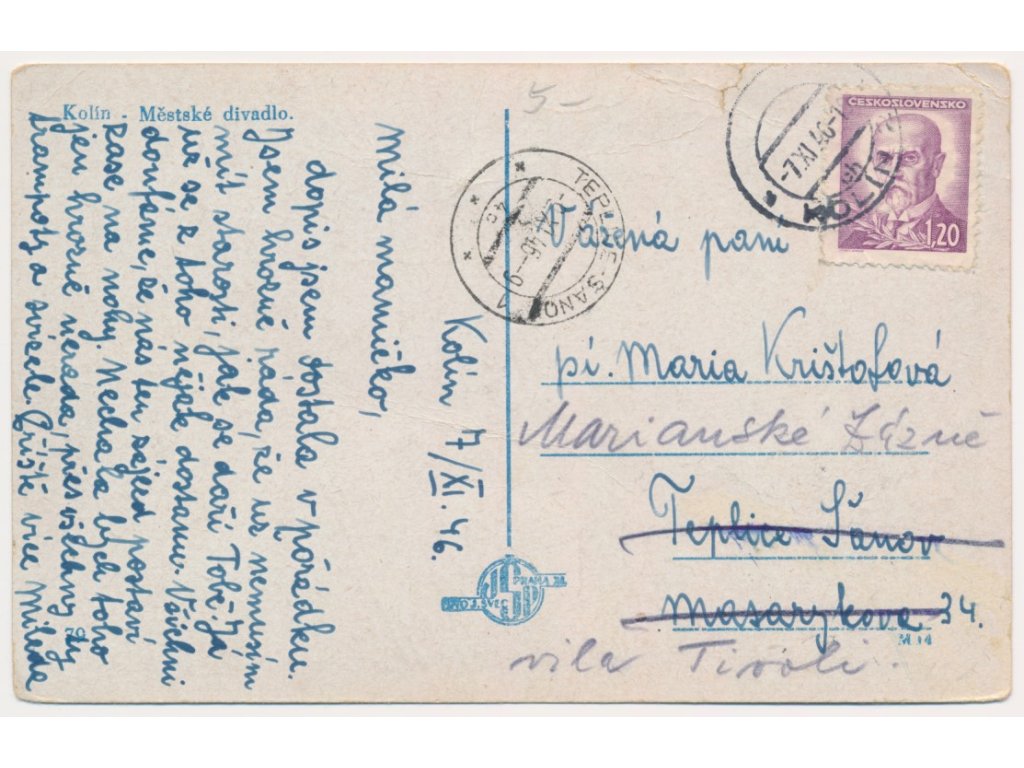 Kolín - Městské divadlo.
Kolín, 7/XI. 46.
Milá mamičko,
dopis jsem dostala v pořádku.
Jsem hrozně ráda, že už nemusím
mít starosti, jak se daří Tobě. Já
už se z toho nějak dostanu. Všichni
doufáme, že nás ten zájezd postaví
zase na nohy. Nechala bych toho
jen hrozně nerada, přes všechny ty
trampoty a svízele. Příště více Milada
5-
TEPLICE-ŠANOV
1
ČESKOSLOVENSKO
1,20
-7.XI.46-1
KOLÍN
Vážená paní
pí. Maria Krištofová
Marianské Lázně
Teplice Šanov
Masarykova 34.
vila Tivoli.
PRAHA
M 14